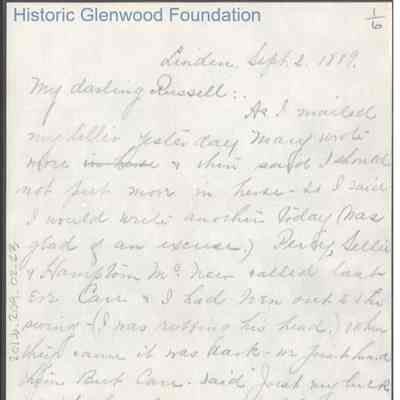 Historic Glenwood Foundation
1/6
Linden, Sept. 2. 1889.
My darling Russell:.
As I mailed
my letter yesterday Mary wrote
more in hers & then said I should
not put more in hers - so I said
I would write another today (was
glad of an excuse.) Percy, Sellie
& Hampton Mc Neer called last
eve, Carr & I had been out to the
swing - (I was rubbing his head.) when
they came it was dark - we just had
them But Carr - said, "just my luck
2012.209.02.23